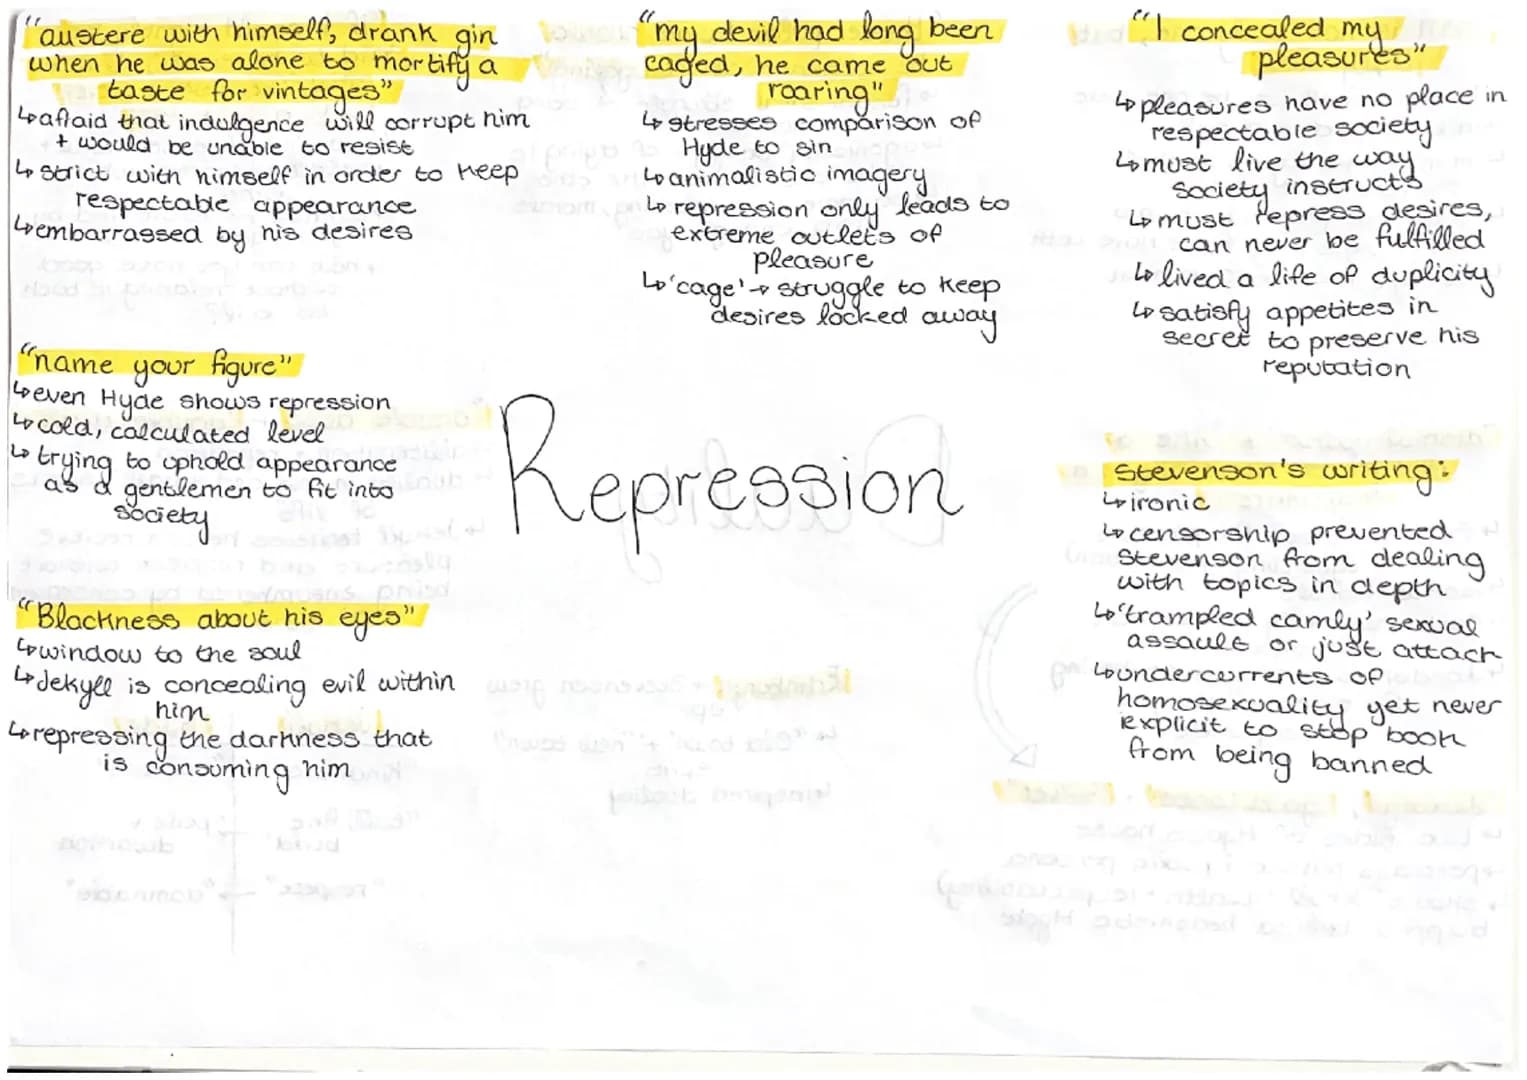 "austere with himself, drank gin
when he was alone to mortify a
taste for vintages"
↳afraid that indulgence will corrupt him
+ would be unable to resist
↳ strict with himself in order to keep
respectable appearance
↳embarrassed by his desires
"name your figure"
↳even Hyde shows repression
↳cold, calculated level
↳trying to uphold appearance
as a gentlemen to fit into
society
"Blackness about his eyes"
↳window to the soul
↳Jekyll is concealing evil within
him
↳repressing the darkness that
is consuming him
"my devil had long been
caged, he came out
roaring"
↳ stresses comparison of
Hyde to sin
↳animalistic imagery
↳ repression only leads to
extreme outlets of
pleasure
↳'cage' → struggle to keep
desires locked away
Repression
"I concealed my
pleasures"
↳pleasures have no place in
respectable society
↳must live the way
society instructs
↳must repress desires,
can never be fulfilled
↳lived a life of duplicity
↳satisfy appetites in
secret to preserve his
reputation
Stevenson's writing:
↳ironic
↳censorship prevented
Stevenson from dealing
with topics in depth
↳'trampled camly' sexual
assault or just attack
↳undercurrents of
homosexuality yet never
explicit to stop book
from being banned